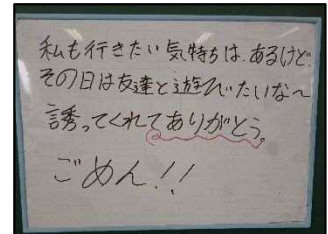 私も行きたい気持ちは、あるけど、
その日は友達と遊びたいな～
誘ってくれてありがとう。
ごめん!!